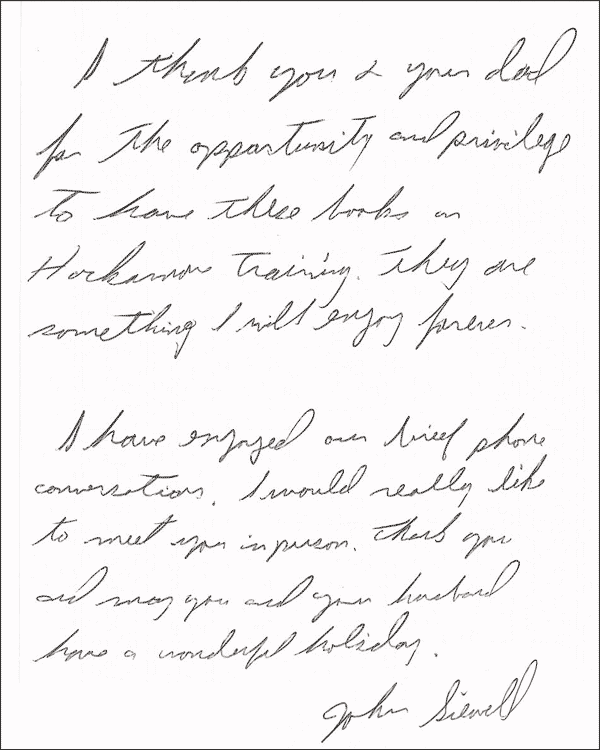 I thank you & your dad
for the opportunity and privilege
to have these books on
Hackamore Training. They are
something I will enjoy forever.
I have enjoyed our brief phone
conversations. I would really like
to meet you in person. Thank you
and may you and your husband
have a wonderful holiday.
John